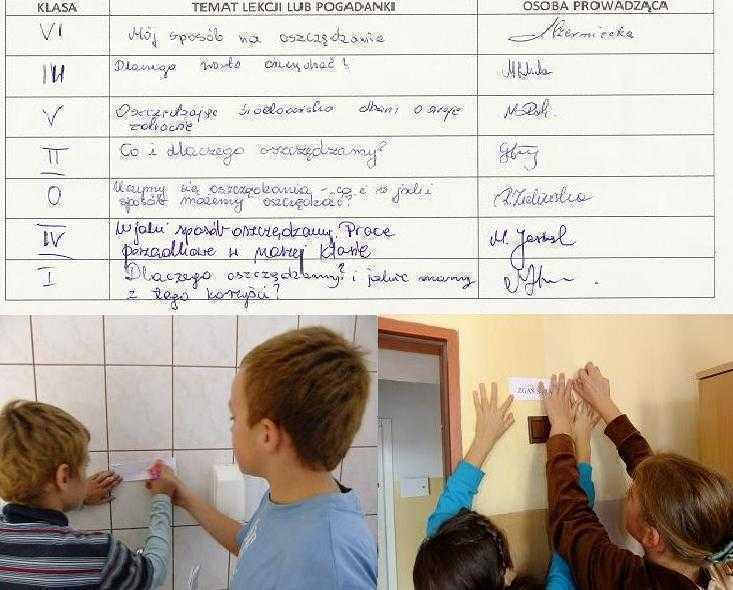 KLASA TEMAT LEKCJI LUB POGADANKI OSOBA PROWADZĄCA
VI Mój sposób na oszczędzanie
III Dlaczego warto oszczędzać?
V Oszczędzając środowisko dbam o swoje
zdrowie
II Co i dlaczego oszczędzamy?
0 Uczymy się oszczędzania - co i w jaki
sposób możemy oszczędzać?
IV W jaki sposób oszczędzamy. Prace
porządkowe w naszej klasie
I Dlaczego oszczędzamy? i jakie mamy
z tego korzyści?
ZGAŚ